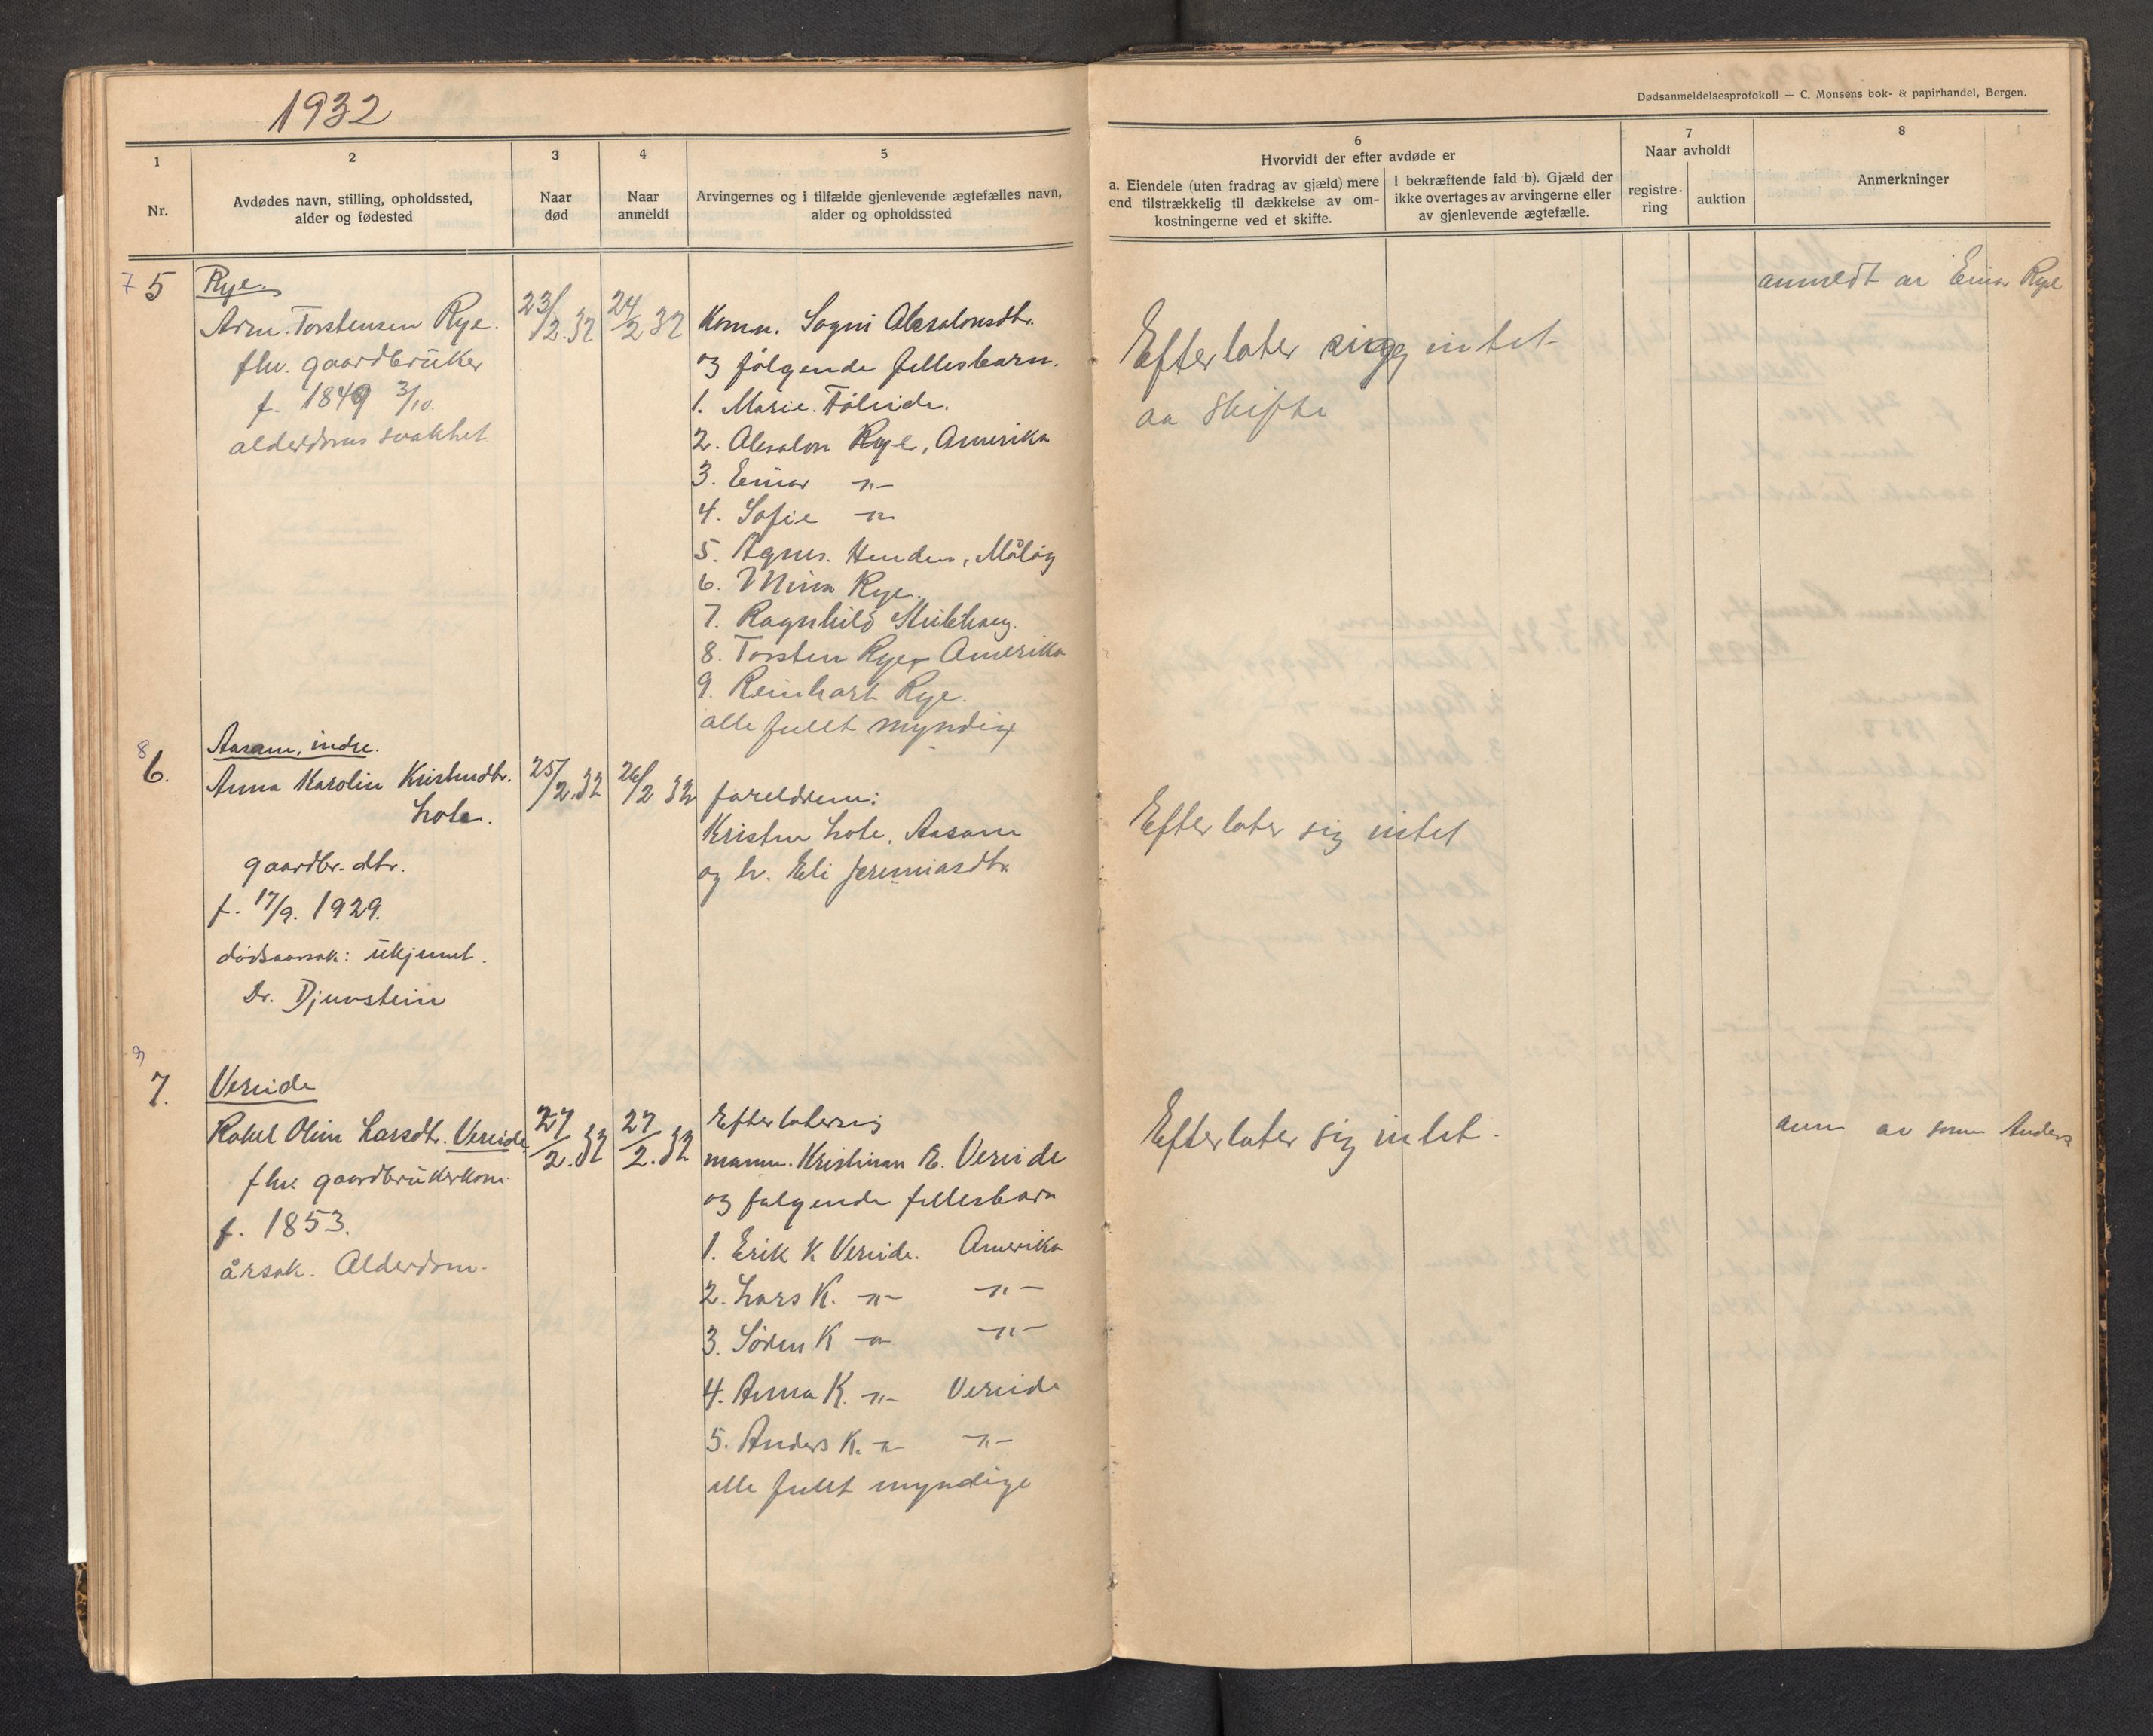 1932
Dødsanmeldelsesprotokoll — C. Monsens bok- & papirhandel, Bergen.
1
2
3
4
5
6
7
8
Nr.
Avdødes navn, stilling, opholdssted,
alder og fødested
Naar
død
Naar
anmeldt
Arvingernes og i tilfælde gjenlevende ægtefælles navn,
alder og opholdssted
Hvorvidt der efter avdøde er
a. Eiendele (uten fradrag av gjæld) mere
end tilstrækkelig til dækkelse av om-
kostningerne ved et skifte.
I bekræftende fald b). Gjæld der
ikke overtages av arvingerne eller
av gjenlevende ægtefælle.
Naar avholdt
registre-
ring
auktion
Anmerkninger
7 5
Rye
Arne Torstensen Rye.
fhv. gaardbruker
f. 1849 3/10.
alderdoms svakhet
23/2.32
24/2 32
Kona. Sogni Absalonsdtr.
og følgende fellesbarn.
1. Marie
2. Absalon Rye, Amerika
3. Einar -"-
4. Sofie -"-
5. Agnes Henden, Måløy
6. Mina Rye.
7. Ragnhild
8. Torsten Rye, Amerika
9. Reinhart Rye.
alle fullt myndig
Efterlater sig intet
aa skifte
anmeldt av Einar Rye
8 6.
Aasam, indre.
Anna Karolin Kristendtr.
Lote.
gaardbr. dtr.
f. 17/9. 1929.
dødsaarsak: ukjennt.
Dr. Djuvstein
25/2.32
26/2 32
foreldrene:
Kristen Lote, Aasam
og h. Eli Jeremiasdtr.
Efterlater sig intet
9 7.
Vereide
Rakel Oline Larsdtr. Vereide
fhv gaardbrukerkone
f. 1853.
årsak. Alderdom.
27/2.32
27/2.32
Efterlater sig
mann. Kristian E. Vereide
og følgende fellesbarn
1. Erik K Vereide. Amerika
2. Lars K. -"- -"-
3. Søren K -"- -"-
4. Anna K. -"- Vereide
5. Anders K. -"- -"-
alle fullt myndige
Efterlater sig intet.
anm av sønn Anders